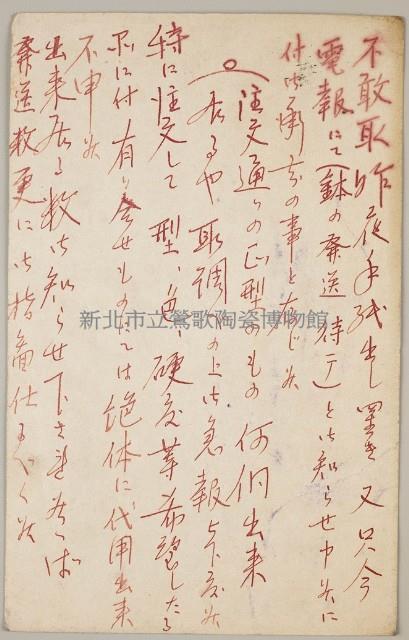 不敢取 昨夜手紙出し置き 又只今
電報にて(鉢の発送待テ)と御知らせ申候に
付御承知の事と存じ候
(注文通りの正型のもの 何個出来
居るや 取調べの上御急報与下度候
特に注文して 型、色、硬度等希望したる
品に付 有り合せものにては絶体に代用出来
不申候
出来居る数御知らせ下され候へば
発送数更に御指図仕るべく候
新北市立鶯歌陶瓷博物館